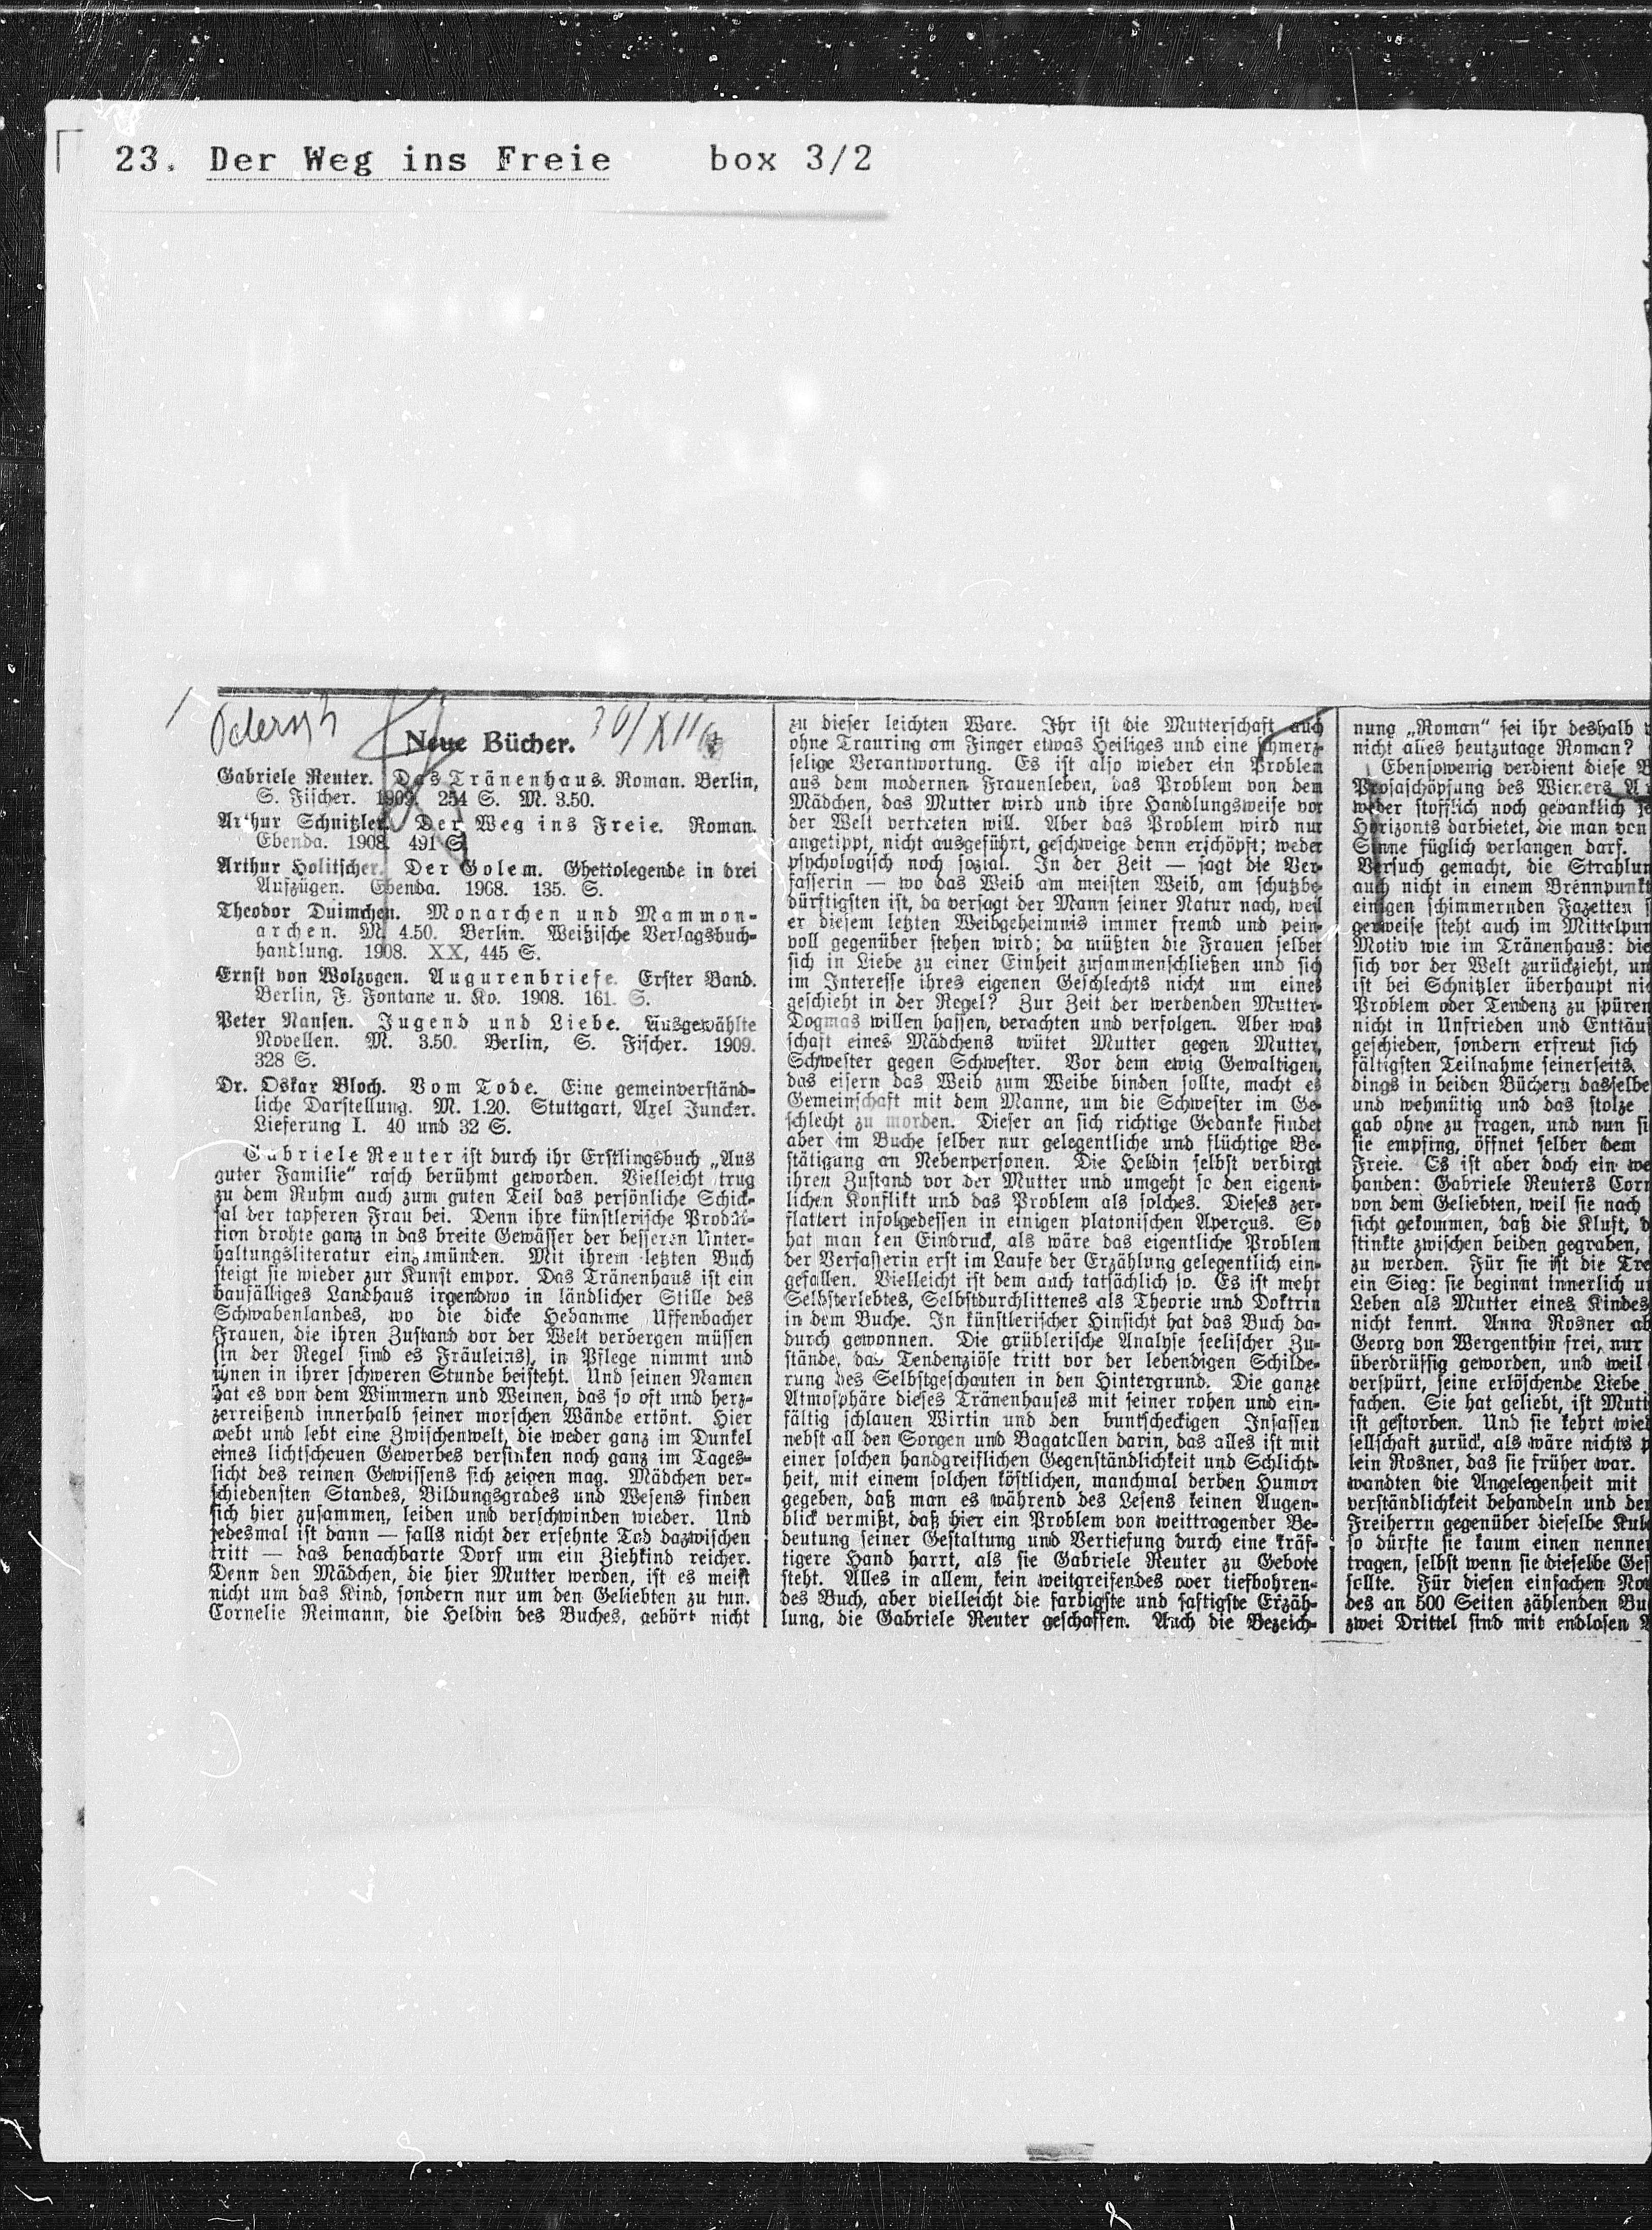 23. Der Weg ins Freie box 3/2
30/XII
Neue Bücher.
Gabriele Reuter. Das Tränenhaus. Roman. Berlin,
S. Fischer. 1909. 254 S. M. 3.50.
Arthur Schnitzler. Der Weg ins Freie. Roman.
Ebenda. 1908. 491 S.
Arthur Holitscher. Der Golem. Ghettolegende in drei
Aufzügen. Ebenda. 1908. 135. S.
Theodor Duimchen. Monarchen und Mammon-
archen. M. 4.50. Berlin. Weißische Verlagsbuch-
handlung. 1908. XX, 445 S.
Ernst von Wolzogen. Augurenbriefe. Erster Band.
Berlin, F. Fontane u. Ko. 1908. 161. S.
Peter Nansen. Jugend und Liebe. Ausgewählte
Novellen. M. 3.50. Berlin, S. Fischer. 1909.
328 S.
Dr. Oskar Bloch. Vom Tode. Eine gemeinverständ-
liche Darstellung. M. 1.20. Stuttgart, Axel Juncker.
Lieferung I. 40 und 32 S.
Gabriele Reuter ist durch ihr Erstlingsbuch „Aus
guter Familie“ rasch berühmt geworden. Vielleicht trug
zu dem Ruhm auch zum guten Teil das persönliche Schick-
sal der tapferen Frau bei. Denn ihre künstlerische Produk-
tion drohte ganz in das breite Gewässer der besseren Unter-
haltungsliteratur einzumünden. Mit ihrem letzten Buch
steigt sie wieder zur Kunst empor. Das Tränenhaus ist ein
baufälliges Landhaus irgendwo in ländlicher Stille des
Schwabenlandes, wo die dicke Hebamme Uffenbacher
Frauen, die ihren Zustand vor der Welt verbergen müssen
(in der Regel sind es Fräuleins), in Pflege nimmt und
ihnen in ihrer schweren Stunde beisteht. Und seinen Namen
hat es von dem Wimmern und Weinen, das so oft und herz-
zerreißend innerhalb seiner morschen Wände ertönt. Hier
webt und lebt eine Zwischenwelt, die weder ganz im Dunkel
eines lichtscheuen Gewerbes versinken noch ganz im Tages-
licht des reinen Gewissens sich zeigen mag. Mädchen ver-
schiedensten Standes, Bildungsgrades und Wesens finden
sich hier zusammen, leiden und verschwinden wieder. Und
jedesmal ist dann — falls nicht der ersehnte Tod dazwischen
tritt — das benachbarte Dorf um ein Ziehkind reicher.
Denn den Mädchen, die hier Mutter werden, ist es meist
nicht um das Kind, sondern nur um den Geliebten zu tun.
Cornelie Reimann, die Heldin des Buches, gehört nicht
zu dieser leichten Ware. Ihr ist die Mutterschaft auch
ohne Trauring am Finger etwas Heiliges und eine schmerz-
selige Verantwortung. Es ist also wieder ein Problem
aus dem modernen Frauenleben, das Problem von dem
Mädchen, das Mutter wird und ihre Handlungsweise vor
der Welt vertreten will. Aber das Problem wird nur
angetippt, nicht ausgeführt, geschweige denn erschöpft; weder
psychologisch noch sozial. In der Zeit — sagt die Ver-
fasserin — wo das Weib am meisten Weib, am schutzbe-
dürftigsten ist, da versagt der Mann seiner Natur nach, weil
er diesem letzten Weibgeheimnis immer fremd und pein-
voll gegenüber stehen wird; da müßten die Frauen selber
sich in Liebe zu einer Einheit zusammenschließen und sich
im Interesse ihres eigenen Geschlechts nicht um eines
geschieht in der Regel? Zur Zeit der werdenden Mutter-
Dogmas willen hassen, verachten und verfolgen. Aber was
schaft eines Mädchens wütet Mutter gegen Mutter,
Schwester gegen Schwester. Vor dem ewig Gewaltigen,
das eisern das Weib zum Weibe binden sollte, macht es
Gemeinschaft mit dem Manne, um die Schwester im Ge-
schlecht zu morden. Dieser an sich richtige Gedanke findet
aber im Buche selber nur gelegentliche und flüchtige Be-
stätigung an Nebenpersonen. Die Heldin selbst verbirgt
ihren Zustand vor der Mutter und umgeht so den eigent-
lichen Konflikt und das Problem als solches. Dieses zer-
flattert infolgedessen in einigen platonischen Aperçus. So
hat man den Eindruck, als wäre das eigentliche Problem
der Verfasserin erst im Laufe der Erzählung gelegentlich ein-
gefallen. Vielleicht ist dem auch tatsächlich so. Es ist mehr
Selbsterlebtes, Selbstdurchlittenes als Theorie und Doktrin
in dem Buche. In künstlerischer Hinsicht hat das Buch da-
durch gewonnen. Die grüblerische Analyse seelischer Zu-
stände, das Tendenziöse tritt vor der lebendigen Schilde-
rung des Selbstgeschauten in den Hintergrund. Die ganze
Atmosphäre dieses Tränenhauses mit seiner rohen und ein-
fältig schlauen Wirtin und den buntscheckigen Insassen
nebst all den Sorgen und Bagatellen darin, das alles ist mit
einer solchen handgreiflichen Gegenständlichkeit und Schlicht-
heit, mit einem solchen köstlichen, manchmal derben Humor
gegeben, daß man es während des Lesens keinen Augen-
blick vermißt, daß hier ein Problem von weittragender Be-
deutung seiner Gestaltung und Vertiefung durch eine kräf-
tigere Hand harrt, als sie Gabriele Reuter zu Gebote
steht. Alles in allem, kein weitgreifendes oder tiefbohren-
des Buch, aber vielleicht die farbigste und saftigste Erzäh-
lung, die Gabriele Reuter geschaffen. Auch die Bezeich-
nung „Roman“ sei ihr deshalb
nicht alles heutzutage Roman?
Ebensowenig verdient diese
Prosaschöpfung des Wieners
weder stofflich noch gedanklich
Horizonts darbietet, die man von
Sinne füglich verlangen darf.
Versuch gemacht, die
auch nicht in einem Brennpunkt
einigen schimmernden Fazetten
steht auch im
Motiv wie im Tränenhaus: die
sich vor der Welt zurückzieht,
ist bei Schnitzler überhaupt
Problem oder Tendenz zu
nicht in Unfrieden und
geschieden, sondern erfreut sich
fältigsten Teilnahme seinerseits.
dings in beiden Büchern dasselbe
und wehmütig und das stolze
gab ohne zu fragen, und nun
sie empfing, öffnet selber dem
Freie. Es ist aber doch ein
handen: Gabriele Reuters
von dem Geliebten, weil sie nach
sicht gekommen, daß die Kluft,
stinkte zwischen beiden gegraben,
zu werden. Für sie ist die
ein Sieg: sie beginnt innerlich
Leben als Mutter eines Kindes
nicht kennt. Anna Rosner
Georg von Wergenthin frei, nur
überdrüssig geworden, und weil
verspürt, seine erlöschende Liebe
fachen. Sie hat geliebt, ist
ist gestorben. Und sie kehrt
sellschaft zurück, als wäre nichts
lein Rosner, das sie früher war.
wandten die Angelegenheit mit
verständlichkeit behandeln und
Freiherrn gegenüber dieselbe
so dürfte sie kaum einen
tragen, selbst wenn sie dieselbe
sollte. Für diesen einfachen
des an 500 Seiten zählenden
zwei Drittel sind mit endlosen